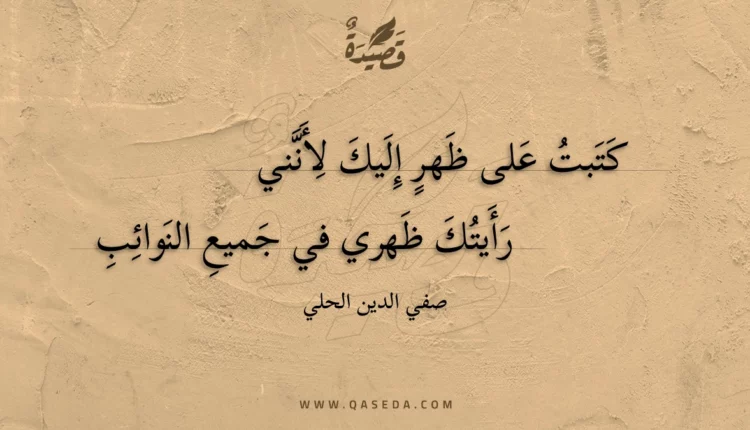 قَصِيدَةٌ
كَتَبتُ عَلى ظَهرٍ إِلَيكَ لِأَنَّني
رَأَيتُكَ ظَهري في جَميعِ النَوائِبِ
صفي الدين الحلي
WWW.QASEDA.COM